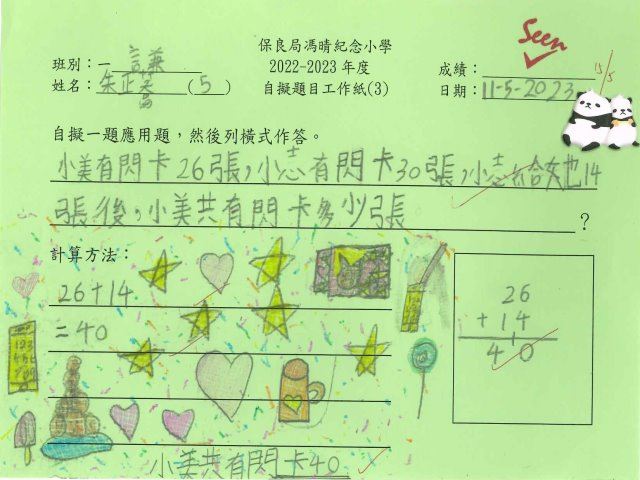 保良局馮晴紀念小學
2022-2023 年度
自擬題目工作紙(3)
Seen
班別：一 謙
姓名：朱正 (5)
成績： 15/5
日期：11-5-2023
自擬一題應用題，然後列橫式作答。
小美有閃卡26張，小志有閃卡30張，小志給她14
張後，小美共有閃卡多少張？
計算方法：
26+14
=40
26
+ 14
40
小美共有閃卡40